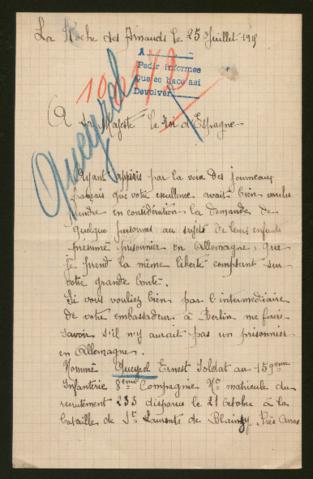 La Roche des Arnauds le 25 Juillet 191
A
Pedir informes
Que se hace asi
Devolver
A sa Majesté le Roi d'Espagne
Queyrel
Ayant appris par la voix des journeaux
français que votre excellence avait bien voulu
prendre en considération la demande de
quelque personnes au sujet de leurs enfants
présumé prisonnier en Allemagne, que
je prend la même liberté comptant sur
votre grande bonté.
Si vous vouliez bien par l'intermédiaire
de votre embassadeur à Berlin me faire
savoir s'il n'y aurait pas un prisonnier
en Allemagne
Nommé Queyrel Ernest Soldat au 159eme
Infanterie 8eme Compagnie No matricule du
recrutement 235 disparue le 21 octobre à la
batailles de St Laurents de Blangy, Près Arras